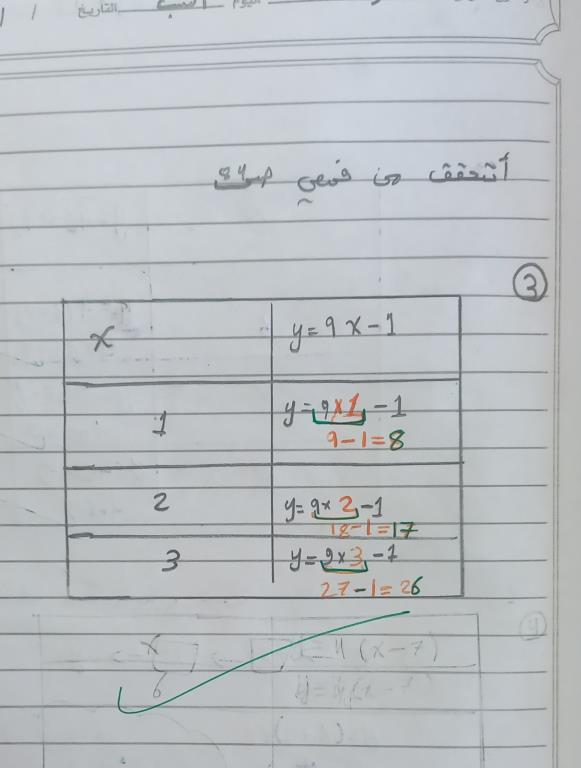 اليوم التاريخ / /
أتحقق من فهمي ص84
3
x y=9x-1
1 y=9×1-1
9-1=8
2 y=9×2-1
18-1=17
3 y=9×3-1
27-1=26
x =4(x-7)
6